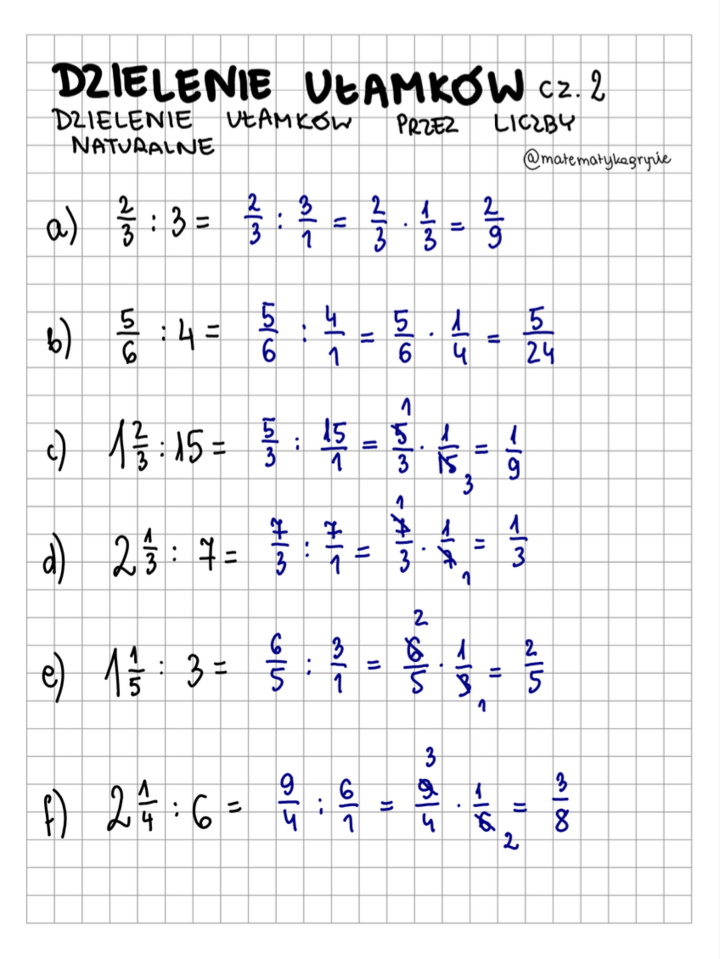 DZIELENIE UŁAMKÓW cz. 2
DZIELENIE UŁAMKÓW PRZEZ LICZBY
NATURALNE
@matematykagryzie
a) 2/3 : 3 = 2/3 : 3/1 = 2/3 · 1/3 = 2/9
b) 5/6 : 4 = 5/6 : 4/1 = 5/6 · 1/4 = 5/24
1
c) 1 2/3 : 15 = 5/3 : 15/1 = 5/3 · 1/15 = 1/9
3
1
d) 2 1/3 : 7 = 7/3 : 7/1 = 7/3 · 1/7 = 1/3
1
2
e) 1 1/5 : 3 = 6/5 : 3/1 = 6/5 · 1/3 = 2/5
1
3
f) 2 1/4 : 6 = 9/4 : 6/1 = 9/4 · 1/6 = 3/8
2